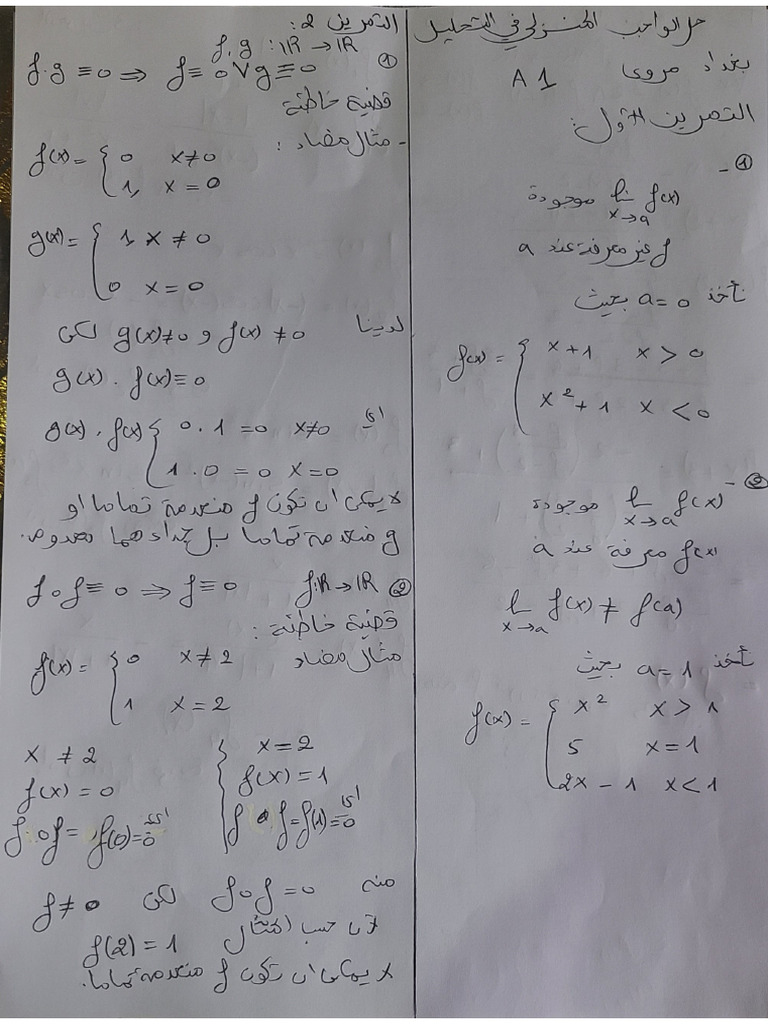 حل الواجب المنزلي في التحليل
بغداد مروى A1
التمرين الأول:
① -
lim_{x→a} f(x) موجودة
f غير معرفة عند a
نأخذ a = 0 بحيث
f(x) = { x+1   x > 0
x² + 1   x < 0
② -
lim_{x→a} f(x) موجودة
f(x) معرفة عند a
lim_{x→a} f(x) ≠ f(a)
نأخذ a = 1 بحيث
f(x) = { x²   x > 1
5   x = 1
2x - 1   x < 1
التمرين 2:
f, g : IR → IR
① f.g ≡ 0 ⇒ f ≡ 0 ∨ g ≡ 0
قضية خاطئة
- مثال مضاد :
f(x) = { 0   x ≠ 0
1,   x = 0
g(x) = { 1,   x ≠ 0
0   x = 0
لدينا f(x) ≠ 0 و g(x) ≠ 0 لكن
g(x) . f(x) ≡ 0
اي g(x) . f(x) { 0 . 1 = 0   x ≠ 0
1 . 0 = 0   x = 0
لا يمكن ان تكون f منعدمة تماما او
g منعدمة تماما بل جداءهما معدوم.
② f: IR → IR   f o f ≡ 0 ⇒ f ≡ 0
قضية خاطئة :
مثال مضاد f(x) = { 0   x ≠ 2
1   x = 2
x = 2
f(x) = 1
اي f o f = f(1) = 0
x ≠ 2
f(x) = 0
f o f = f(0) = 0
منه f o f = 0 لكن f ≠ 0
لان حسب المثال
f(2) = 1
لا يمكن ان تكون f منعدمة تماما.